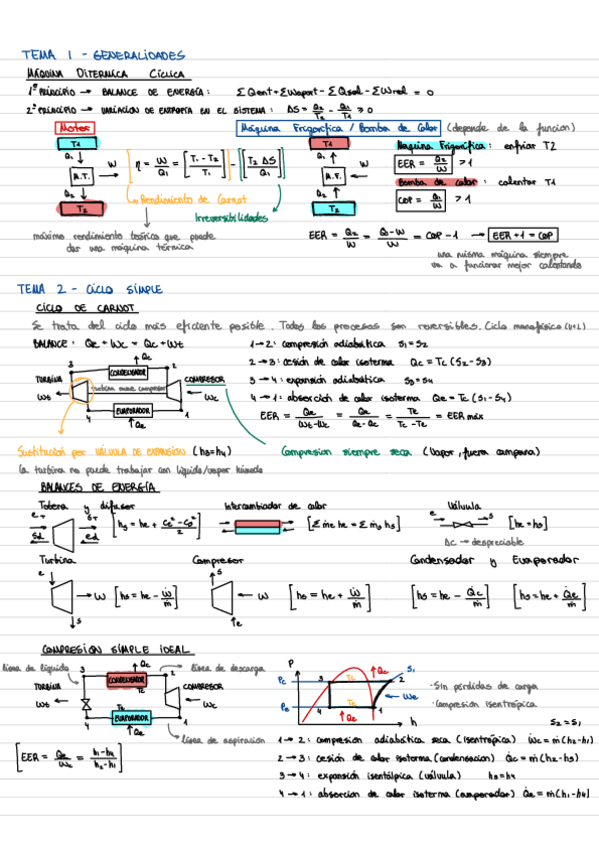 TEMA 1 - GENERALIDADES
MÁQUINA DITERMICA CÍCLICA
1º PRINCIPIO → BALANCE DE ENERGÍA: ΣQent + ΣWaport - ΣQsal - ΣWrel = 0
2º PRINCIPIO → VARIACION DE ENTROPIA EN EL SISTEMA: ΔS = Q2/T2 - Q1/T1 ≥ 0
Motor
Máquina Frigorífica / Bomba de Calor (depende de la función)
T1
Q1
A.T.
W
Q2
T2
η = W/Q1 = [T1 - T2 / T1] - [T2 ΔS / Q1]
Rendimiento de Carnot
Irreversibilidades
máximo rendimiento teórico que puede
dar una máquina térmica
T1
Q1
A.F.
W
Q2
T2
Máquina Frigorífica: enfriar T2
EER = Q2/W > 1
Bomba de calor: calentar T1
COP = Q1/W > 1
EER = Q2/W = Q1-W/W = COP - 1 → EER + 1 = COP
una misma máquina siempre
va a funcionar mejor calentando
TEMA 2 - CICLO SIMPLE
CICLO DE CARNOT
Se trata del ciclo más eficiente posible. Todos los procesos son reversibles. Ciclo monofásico (V+L)
BALANCE: Qe + Wc = Qc + Wt
1→2: compresión adiabática S1 = S2
2→3: cesión de calor isoterma Qc = Tc (S2 - S3)
3→4: expansión adiabática S3 = S4
4→1: absorción de calor isoterma Qe = Te (S1 - S4)
EER = Qe/Wt-Wc = Qe/Qe-Qc = Te/Tc-Te = EER max
3
Qc
2
CONDENSADOR
TURBINA
turbina mueve compresor
COMPRESOR
Wt
Wc
EVAPORADOR
4
Qe
1
Sustitución por VÁLVULA DE EXPANSIÓN (h3=h4)
la turbina no puede trabajar con líquido/vapor húmedo
Compresion siempre seca (Vapor, fuera campana)
BALANCES DE ENERGÍA
Tobera y difusor
[hs = he + Ce² - Cs² / 2]
Intercambiador de calor
[Σ me he = Σ ms hs]
Válvula
e
s
[he = hs]
ΔC → despreciable
Turbina
e
s
W
[hs = he - W/m]
Compresor
s
e
W
[hs = he + W/m]
Condensador y Evaporador
[hs = he - Qc/m]
[hs = he + Qe/m]
COMPRESION SIMPLE IDEAL
línea de líquido
línea de descarga
3
Qc
2
CONDENSADOR
Tc
TURBINA
COMPRESOR
Wt
Wc
Te
EVAPORADOR
4
Qe
1
línea de aspiración
[EER = Qe/Wc = h1-h4/h2-h1]
P
Pc
Pe
3
2
4
1
Tc
Te
Qc
Qe
S1
Wc
h
·Sin pérdidas de carga
·Compresion isentrópica
S2 = S1
1→2: compresión adiabática seca (isentrópica) Wc = m (h2-h1)
2→3: cesión de calor isoterma (condensación) Qc = m (h2-h3)
3→4: expansión isentálpica (válvula) h3 = h4
4→1: absorción de calor isoterma (evaporador) Qe = m (h1-h4)